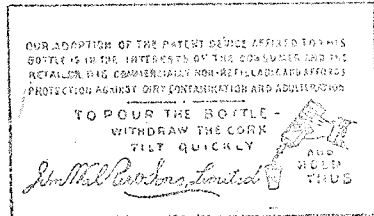 OUR ADOPTION OF THE PATENT DEVICE AFFIXED TO THIS
BOTTLE IS IN THE INTERESTS OF THE CONSUMER AND THE
RETAILER. IT IS COMMERCIALLY NON-REFILLABLE AND AFFORDS
PROTECTION AGAINST DIRT CONTAMINATION AND ADULTERATION
TO POUR THE BOTTLE -
WITHDRAW THE CORK
TILT QUICKLY
AND
HOLD
THUS
John Limited